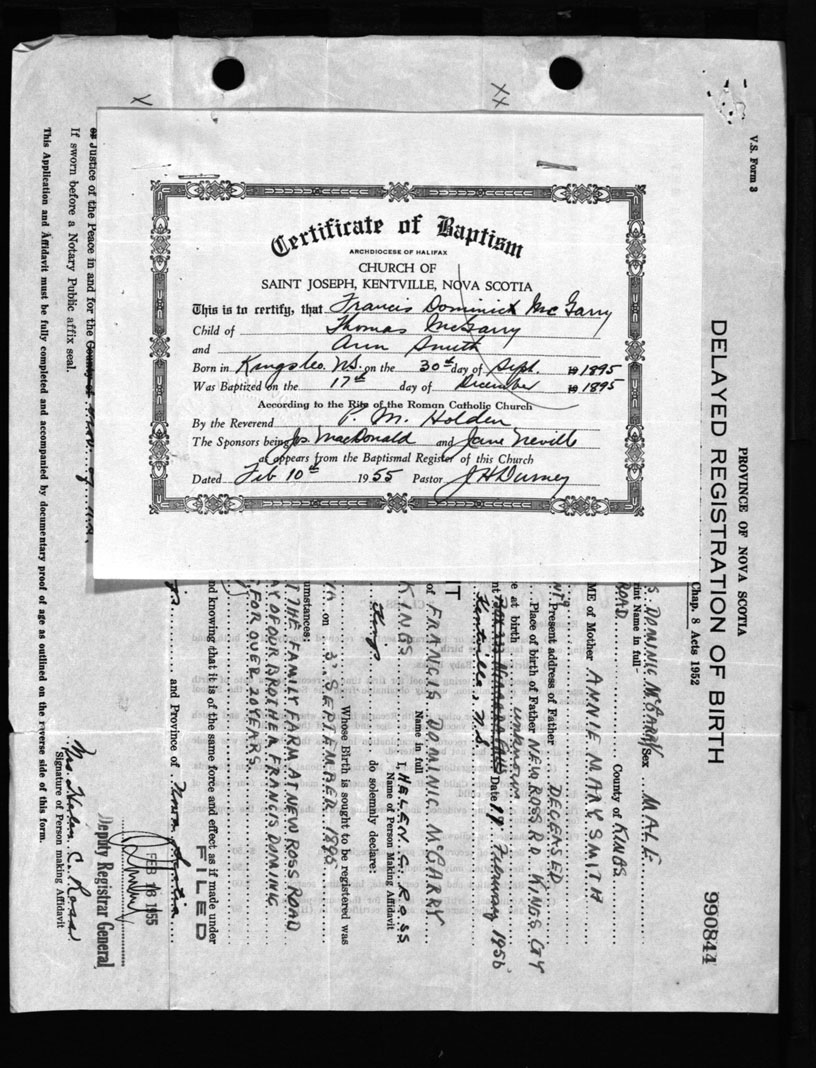 Certificate of Baptism
ARCHDIOCESE OF HALIFAX
CHURCH OF
SAINT JOSEPH, KENTVILLE, NOVA SCOTIA
This is to certify, that Francis Dominick McGarry
Child of Thomas McGarry
and Ann Smith
Born in Kings Co. N.S. on the 30th day of Sept. 1895
Was Baptized on the 17th day of December 1895
According to the Rite of the Roman Catholic Church
By the Reverend P. M. Holden
The Sponsors being Js. MacDonald and Jane Neville
as appears from the Baptismal Register of this Church
Dated Feb 10th 1955 Pastor J H Durney
V.S. Form 3
PROVINCE OF NOVA SCOTIA
DELAYED REGISTRATION OF BIRTH
990844
Chap. 8 Acts 1952
S DOMINIC McGARRY Sex MALE
Print Name in full
ROAD County of KINGS
NAME of Mother ANNIE MARY SMITH
Present address of Father DECEASED
Place of birth of Father NEW ROSS RD. KINGS CTY
e at birth unknown
Date 19 February 195
Kentville, N.S.
of FRANCIS DOMINIC McGARRY
Name in full
KINGS I, HELEN C. ROSS
Name of Person Making Affidavit
Kings do solemnly declare:
Whose Birth is sought to be registered was
on SEPTEMBER 1895
circumstances:
THE FAMILY FARM AT NEW ROSS ROAD
OF OUR BROTHER FRANCIS DOMINIC
FOR OVER 20 YEARS.
and knowing that it is of the same force and effect as if made under
FILED
and Province of Nova Scotia
FEB 18 1955
Deputy Registrar General
Mrs. Helen C. Ross
Signature of Person making Affidavit
or Justice of the Peace in and for the County of
If sworn before a Notary Public affix seal.
This Application and Affidavit must be fully completed and accompanied by documentary proof of age as outlined on the reverse side of this form.